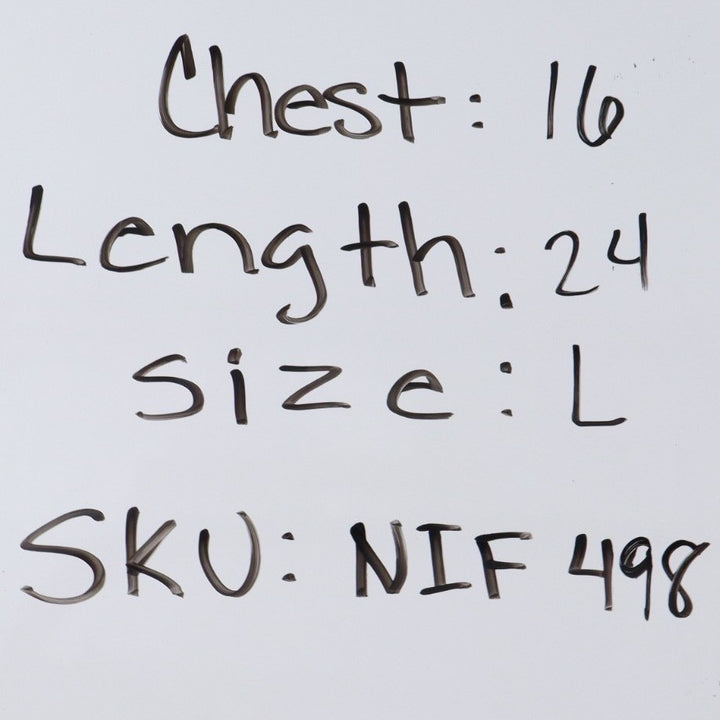 Chest: 16
Length: 24
Size: L
SKU: NIF 498